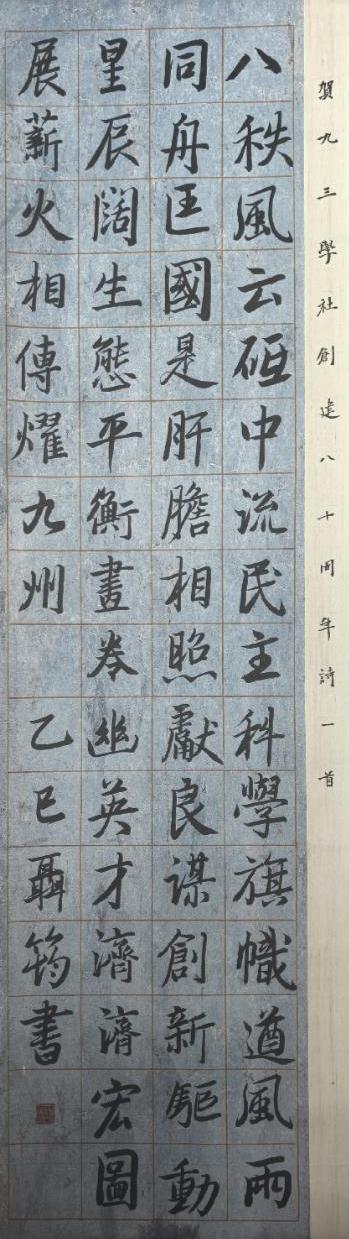 賀九三學社創建八十周年詩一首
八秩風云砥中流民主科學旗幟遒風雨
同舟匡國是肝膽相照獻良謀創新驅動
星辰闊生態平衡畫卷幽英才濟濟宏圖
展薪火相傳耀九州 乙巳聶筠書